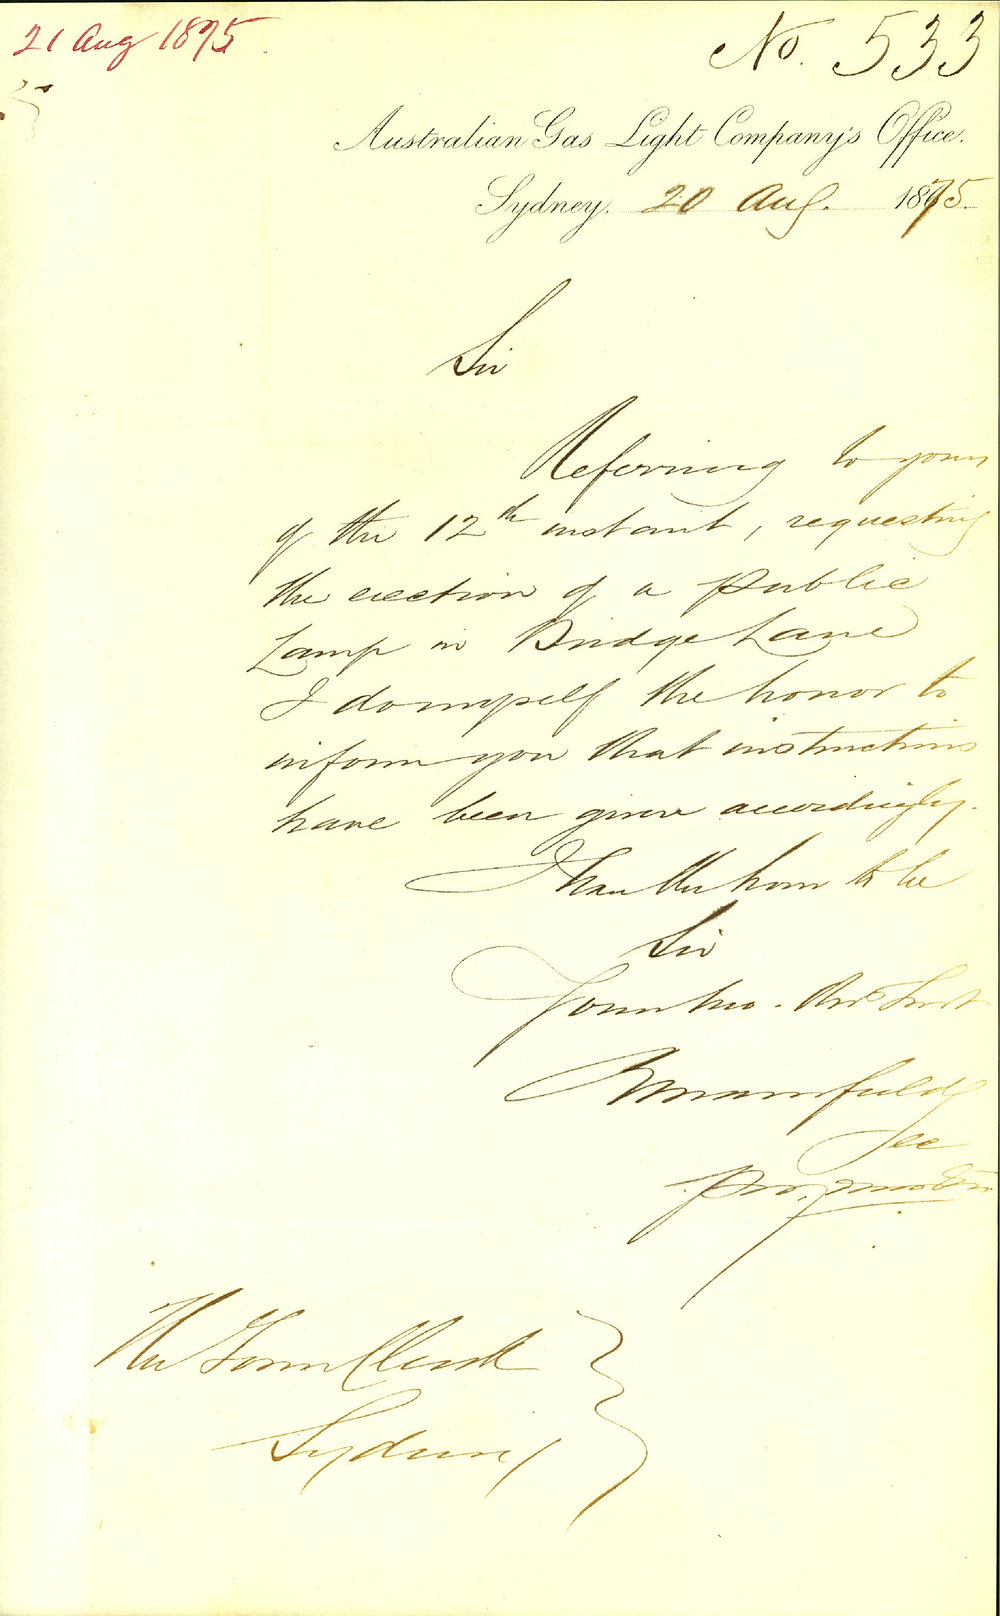 21 Aug 1875
No. 533
Australian Gas Light Company's Office.
Sydney. 20 Aug. 1875.
Sir
Referring to yours
of the 12th instant, requesting
the erection of a Public
Lamp in Bridge Lane
I do myself the honor to
inform you that instructions
have been given accordingly.
I have the honor to be
Sir
Your mo. Obt Servt
Mansfield
Sec
The Town Clerk
Sydney